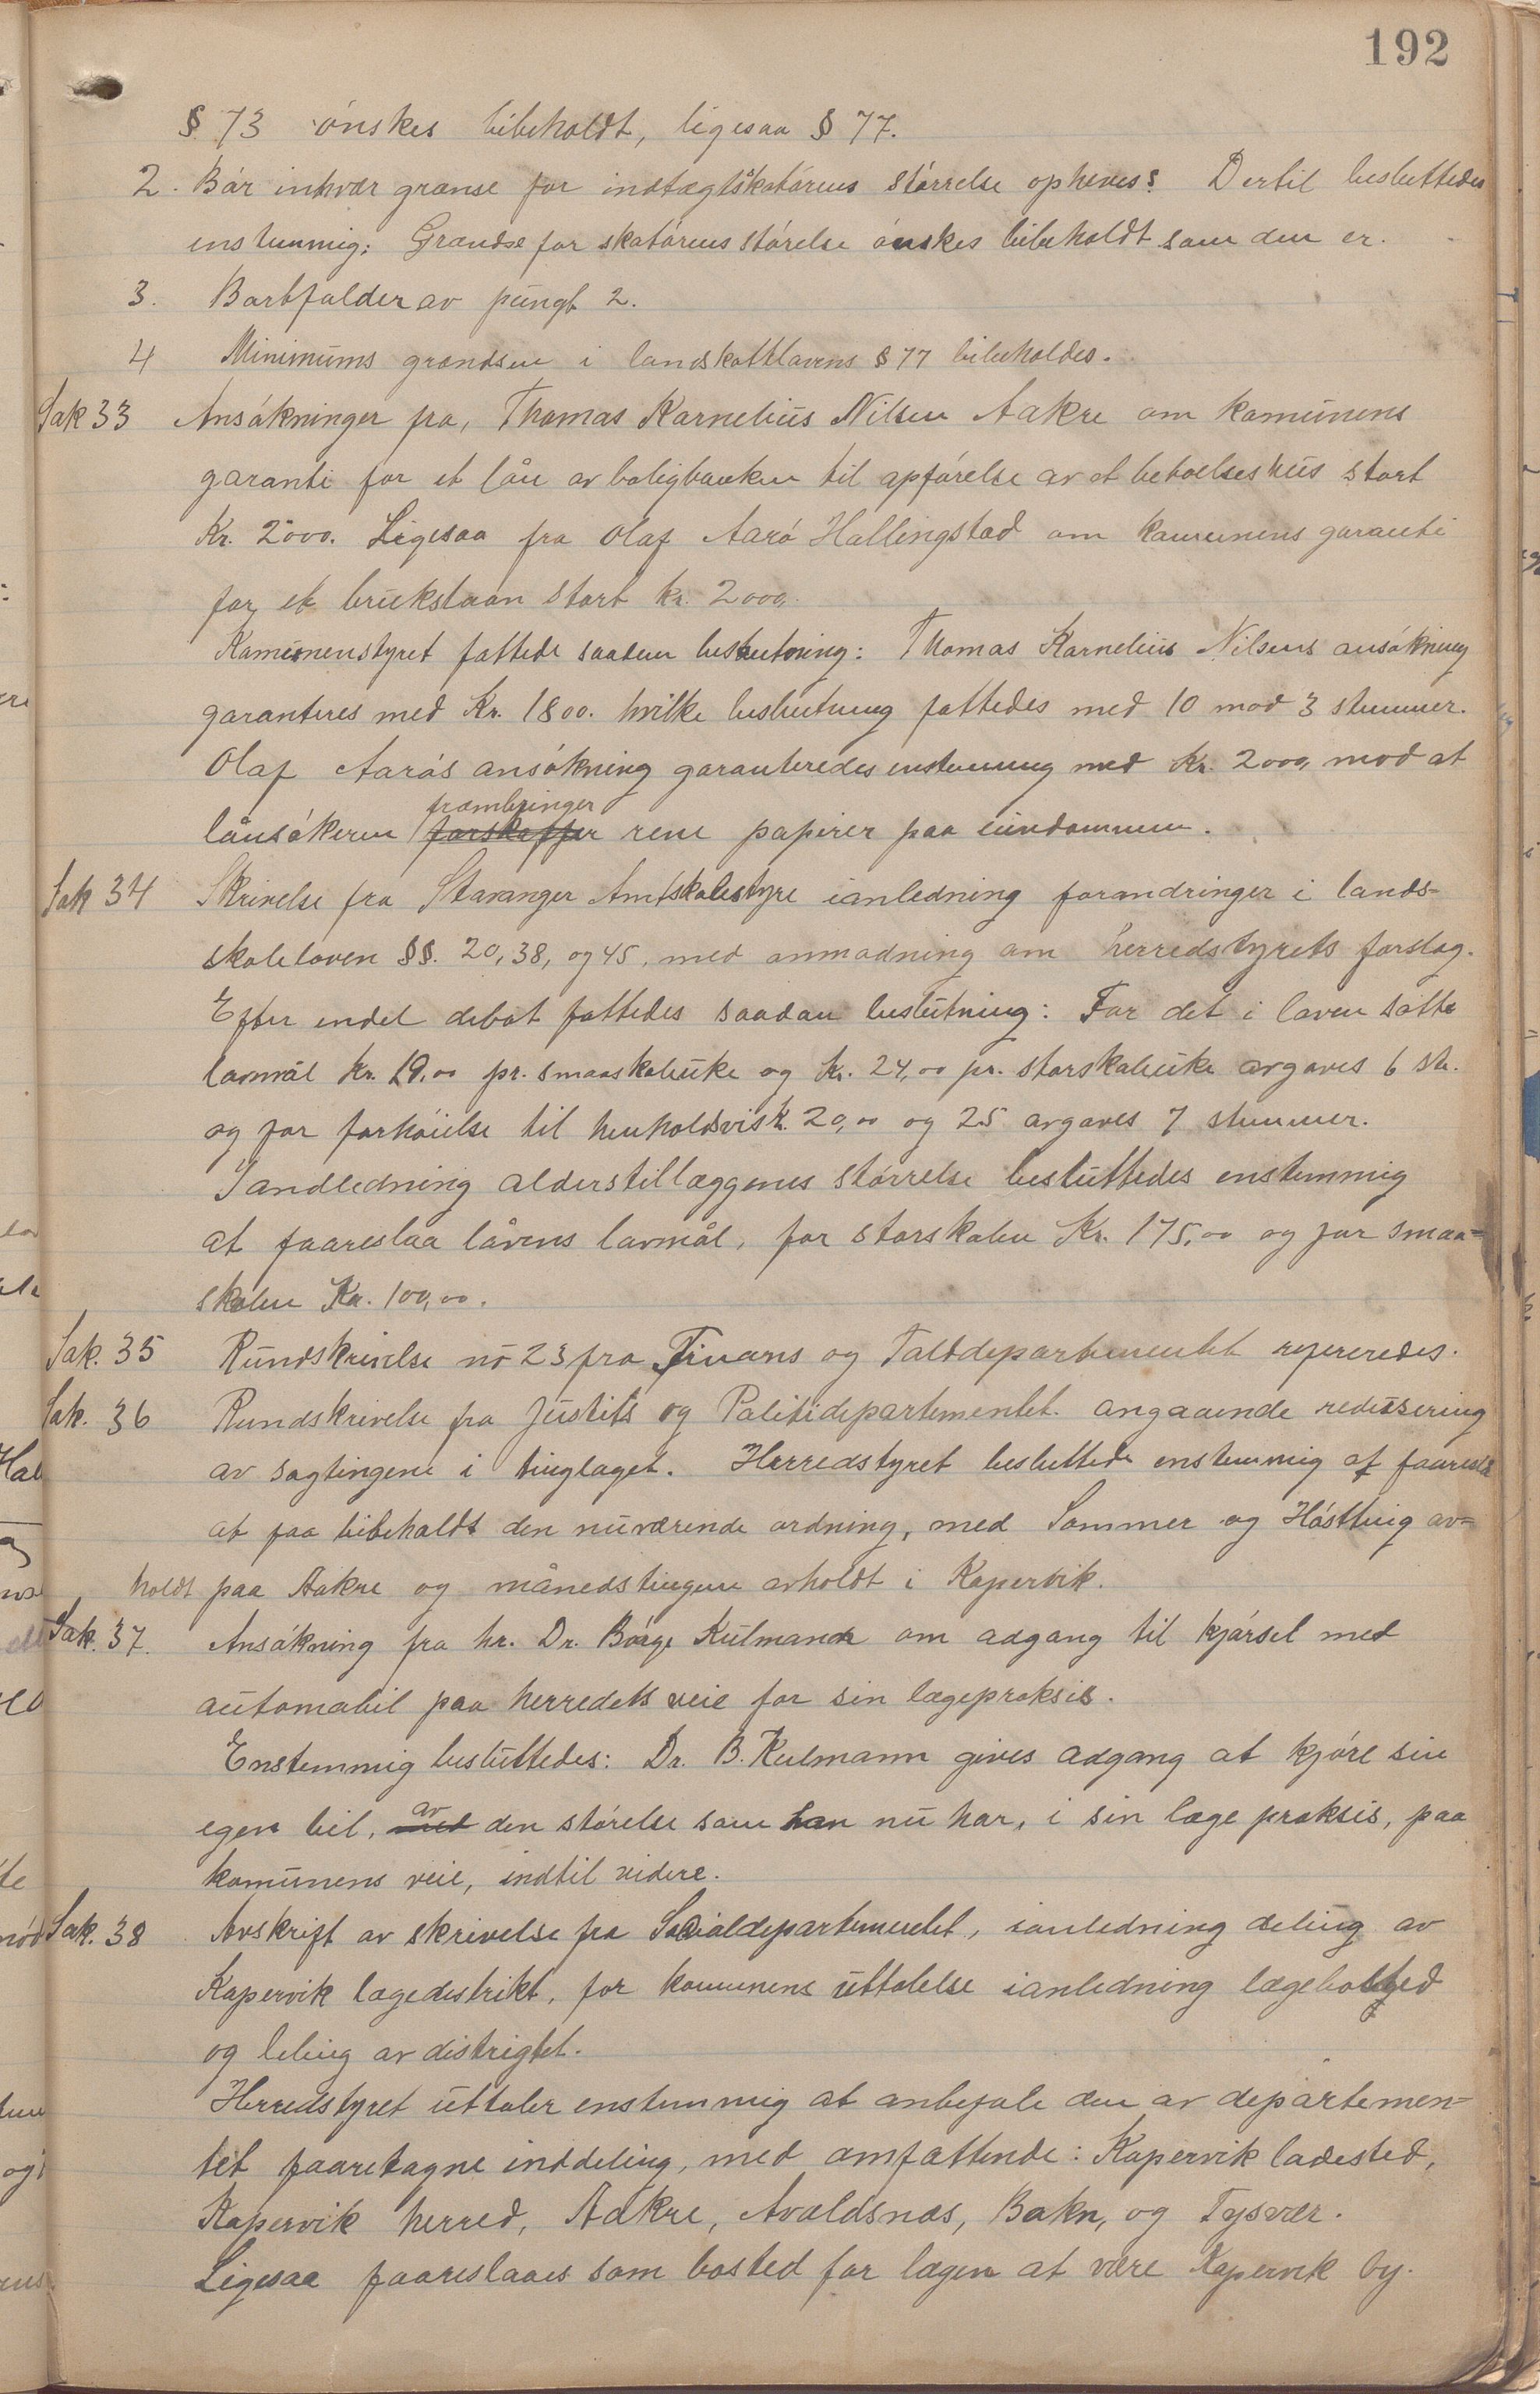 192
§ 73 ønskes bibeholdt, ligesaa § 77.
2. Bør inhvær grænse for indtægtskatørens størrelse opheves? Dertil besluttedes
enstemmig: Grændse for skatørens størelse ønskes bibeholdt som den er.
3. Bortfalder av pungt 2.
4 Minimums grændsen i landskattelovens § 77 bibeholdes.
Sak 33 Ansøkninger fra, Thomas Kornelius Nilsen Aakre om komunens
garanti for et lån av boligbanken til opførelse av et beboelseshus stort
Kr. 2000. Ligesaa fra Olaf Aarø Hallingstad om kommunens garanti
for et brukslaan stort kr. 2000,
Komunenstyret fattede saaden beslutning: Thomas Kornelius Nilsens ansøkning
garanteres med Kr. 1800. hvilke beslutning fattedes med 10 mod 3 stemmer.
Olaf Aarøs ansøkning garanteredes enstemmig med Kr. 2000, mod at
frembringer
lånsøkeren forskaffer rene papirer paa eiendommen.
Sak 34 Skrivelse fra Stavanger Amtskolestyre ianledning forandringer i lands-
skoleloven §§. 20, 38, og 45, med anmodning om herredstyrets forslag.
Efter endel debat fattedes saadan beslutning: For det i loven satte
lavmål kr. 19,00 pr. smaaskoleuke og kr. 24,00 pr. storskoleuke avgaves 6 st.
og for forhøielse til henholdsvis k. 20,00 og 25 avgaves 7 stemmer.
Iandledning alderstillæggenes størrelse besluttedes enstemmig
at faareslaa låvens lavmål, for storskolen Kr. 175,00 og for smaa-
skolen Kr. 100,00.
Sak. 35 Rundskrivelse no 23 fra Finans og Tolddepartementet refereredes.
Sak. 36 Rundskrivelse fra Justits og Politidepartementet angaaende redusering
av sagtingene i tinglaget. Herredstyret besluttede enstemmig at faareslå
at faa bibeholdt den nuværende ordning, med Sommer og Høstting av-
holdt paa Aakre og månedstingene avholdt i Kopervik.
Sak. 37. Ansøkning fra hr. Dr. Børge Kulmann om adgang til kjørsel med
automobil paa herredets veie for sin lægepraksis.
Enstemmig besluttedes: Dr. B. Kulmann gives adgang at kjøre sin
av
egen bil, med den størelse som han nu har, i sin læge praksis, paa
komunens veie, indtil videre.
Sak. 38 Avskrift av skrivelse fra Socialdepartementet, ianledning deling av
Kopervik lægedistrikt, for kommunens uttalelse ianledning lægebosted
og deling av distrigtet.
Herredstyret uttaler enstemmig at anbefale den av departemen-
tet faaretagne inddeling, med omfattende: Kopervik ladested,
Kopervik herred, Aakre, Avaldsnæs, Bokn, og Tysvær.
Ligesaa faareslaaes som bosted for lægen at være Kopervik by.